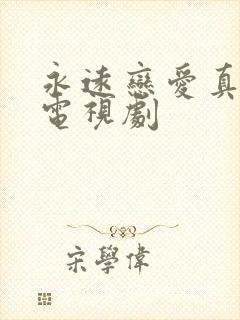 永遠戀愛真
電視劇
宋學偉